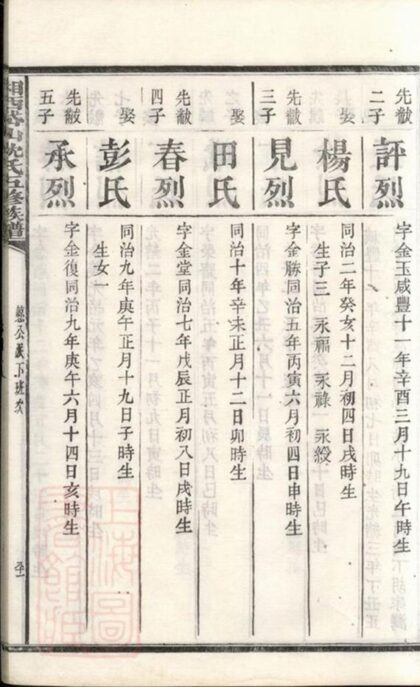 先黻二子
評烈
字金玉咸豐十一年辛酉三月十九日午時生
娶
楊氏
同治二年癸亥十二月初四日戌時生
生子三 永福 永祿 永綬
先黻三子
見烈
字金勝同治五年丙寅六月初四日申時生
娶
田氏
同治十年辛未正月十二日卯時生
先黻四子
春烈
字金堂同治七年戊辰正月初八日戌時生
娶
彭氏
同治九年庚午正月十九日子時生
生女一
先黻五子
承烈
字金復同治九年庚午六月十四日亥時生
沈氏五修族譜
公派下班次
上海圖書館藏